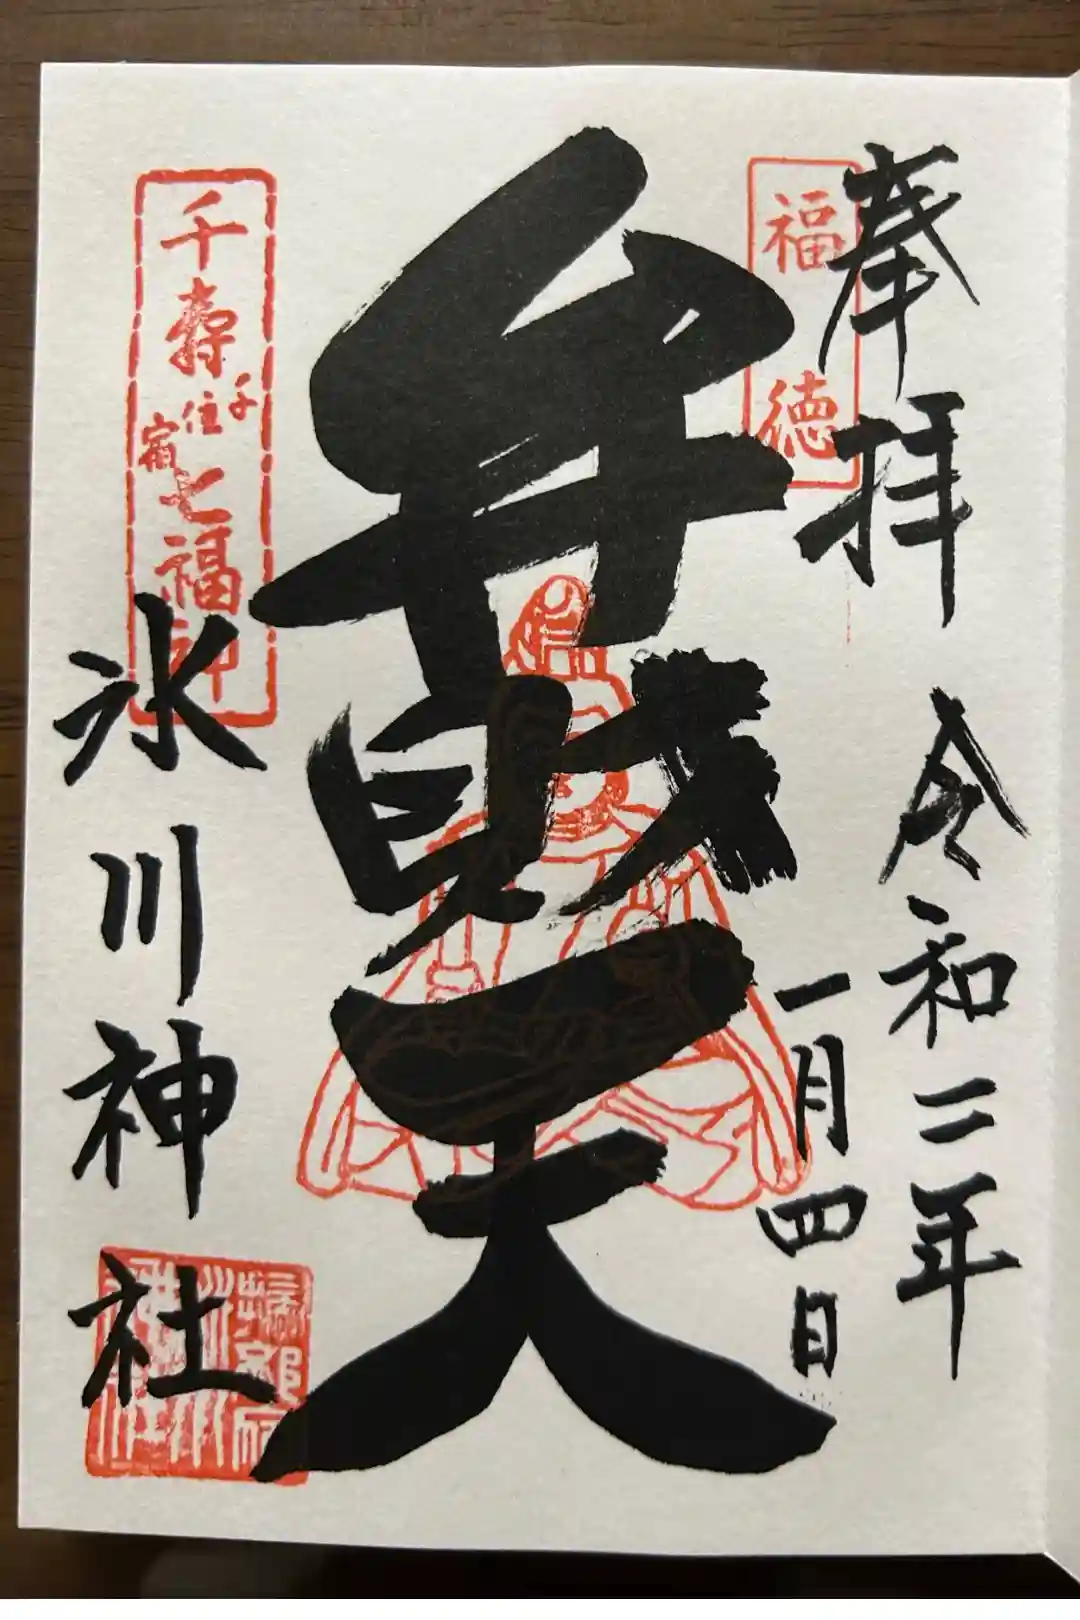 奉拝
福徳
令和二年
一月四日
弁財天
千寿七福神
千住宿
氷川神社